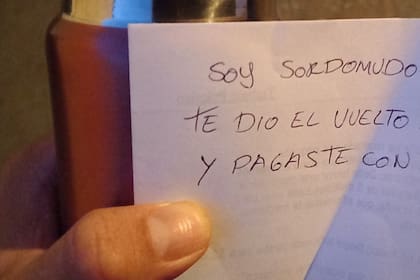 SOY SORDOMUDO
TE DIO EL VUELTO
Y PAGASTE CON